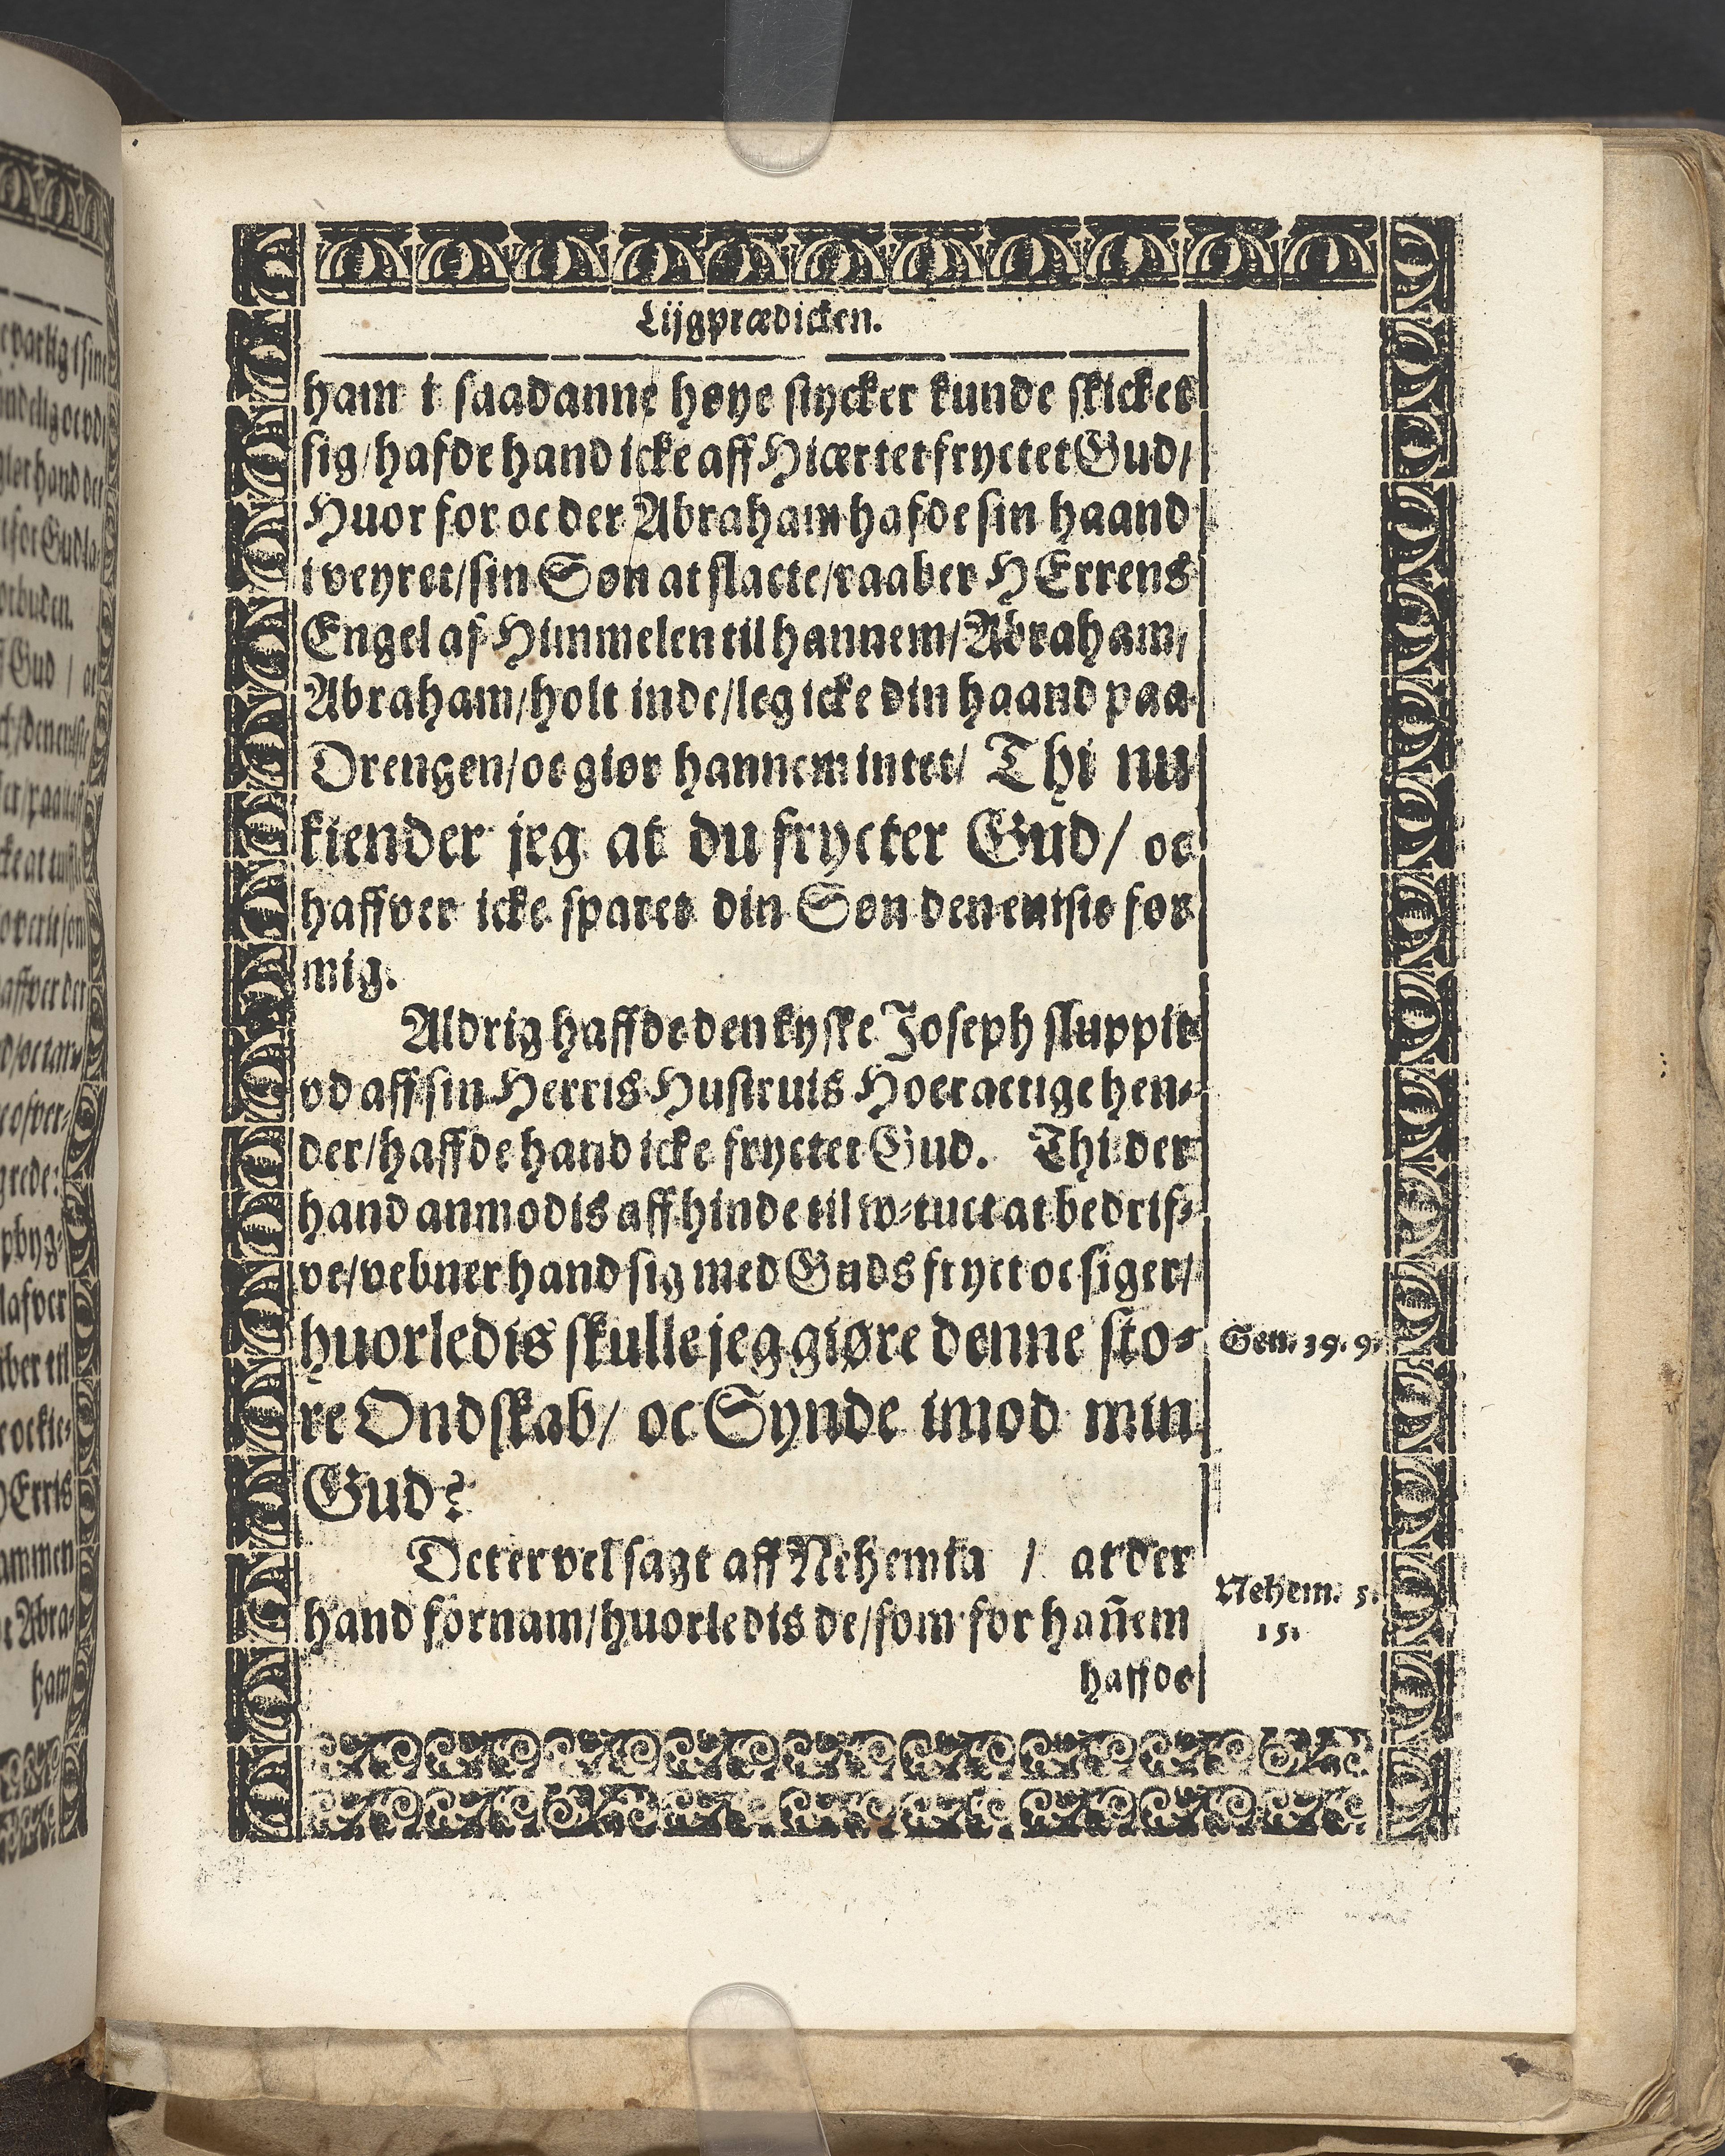 Lijgprædicken.
ham i saadanne høye stycker kunde skicket
sig/hafde hand icke aff Hiærtet fryctet Gud/
Huor for oc der Abraham hafde sin haand
i veyret/sin Søn at slacte/raaber HErrens
Engel af Himmelen til hannem/Abraham/
Abraham/holt inde/leg icke din haand paa
Drengen/oc giør hannem intet/ Thi nu
kiender jeg at du frycter Gud/ oc
haffver icke sparet din Søn den eniste for
mig.
Aldrig haffde den kyske Joseph sluppit
vd aff sin Herris Hustruis Hoeractige hen⸗
der/haffde hand icke fryctet Gud. Thi der
hand anmodis aff hinde til w⸗tuct at bedrif⸗
ve/vebner hand sig med Guds fryct oc siger/
huorledis skulle jeg giøre denne sto⸗
Gen. 39. 9.
re Ondskab/ oc Synde imod min
Gud?
Det er vel sagt aff Nehemia / at der
Nehem. 5.
hand fornam/huorledis de/som for hañem
15.
haffde